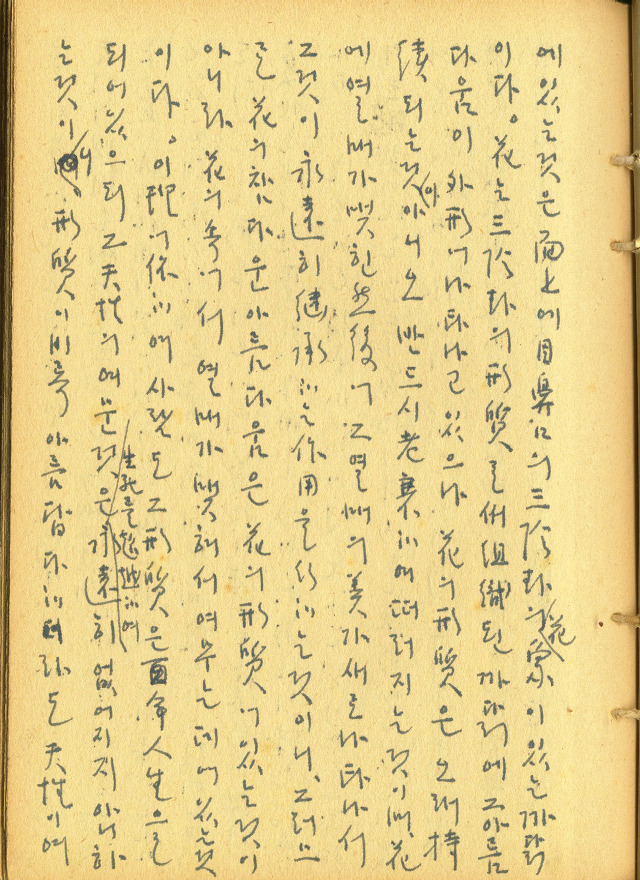 에 있는 것은 面上에 目鼻口의 三陰卦의 象이 있는 까닭
이다。 花는 三陰卦의 形質로 組織된 까닭에 그 아름
다움이 外形에 나타나고 있으나 花의 形質은 오래 持
續되는 것이 아니오 반드시 老衰하여 떠러지는 것이며 花
에 열매가 맺힌 然後에 그 열매의 美가 새로 나타나서
그것이 永遠히 繼承하는 作用을 行하는 것이니、그러므
로 花의 참다운 아름다움은 花의 形質에 있는 것이
아니라 花의 속에서 열매가 맺혀서 여무는 데에 있는 것
이다。 이 理에 依하여 사람도 그 形質은 百年人生으로
되어 있으되 그 天性의 여문 것은 生死를 超越하여 永遠히 없어지지 아니하
는 것이니 形質이 비록 아름답다 하더라도 天性이 여